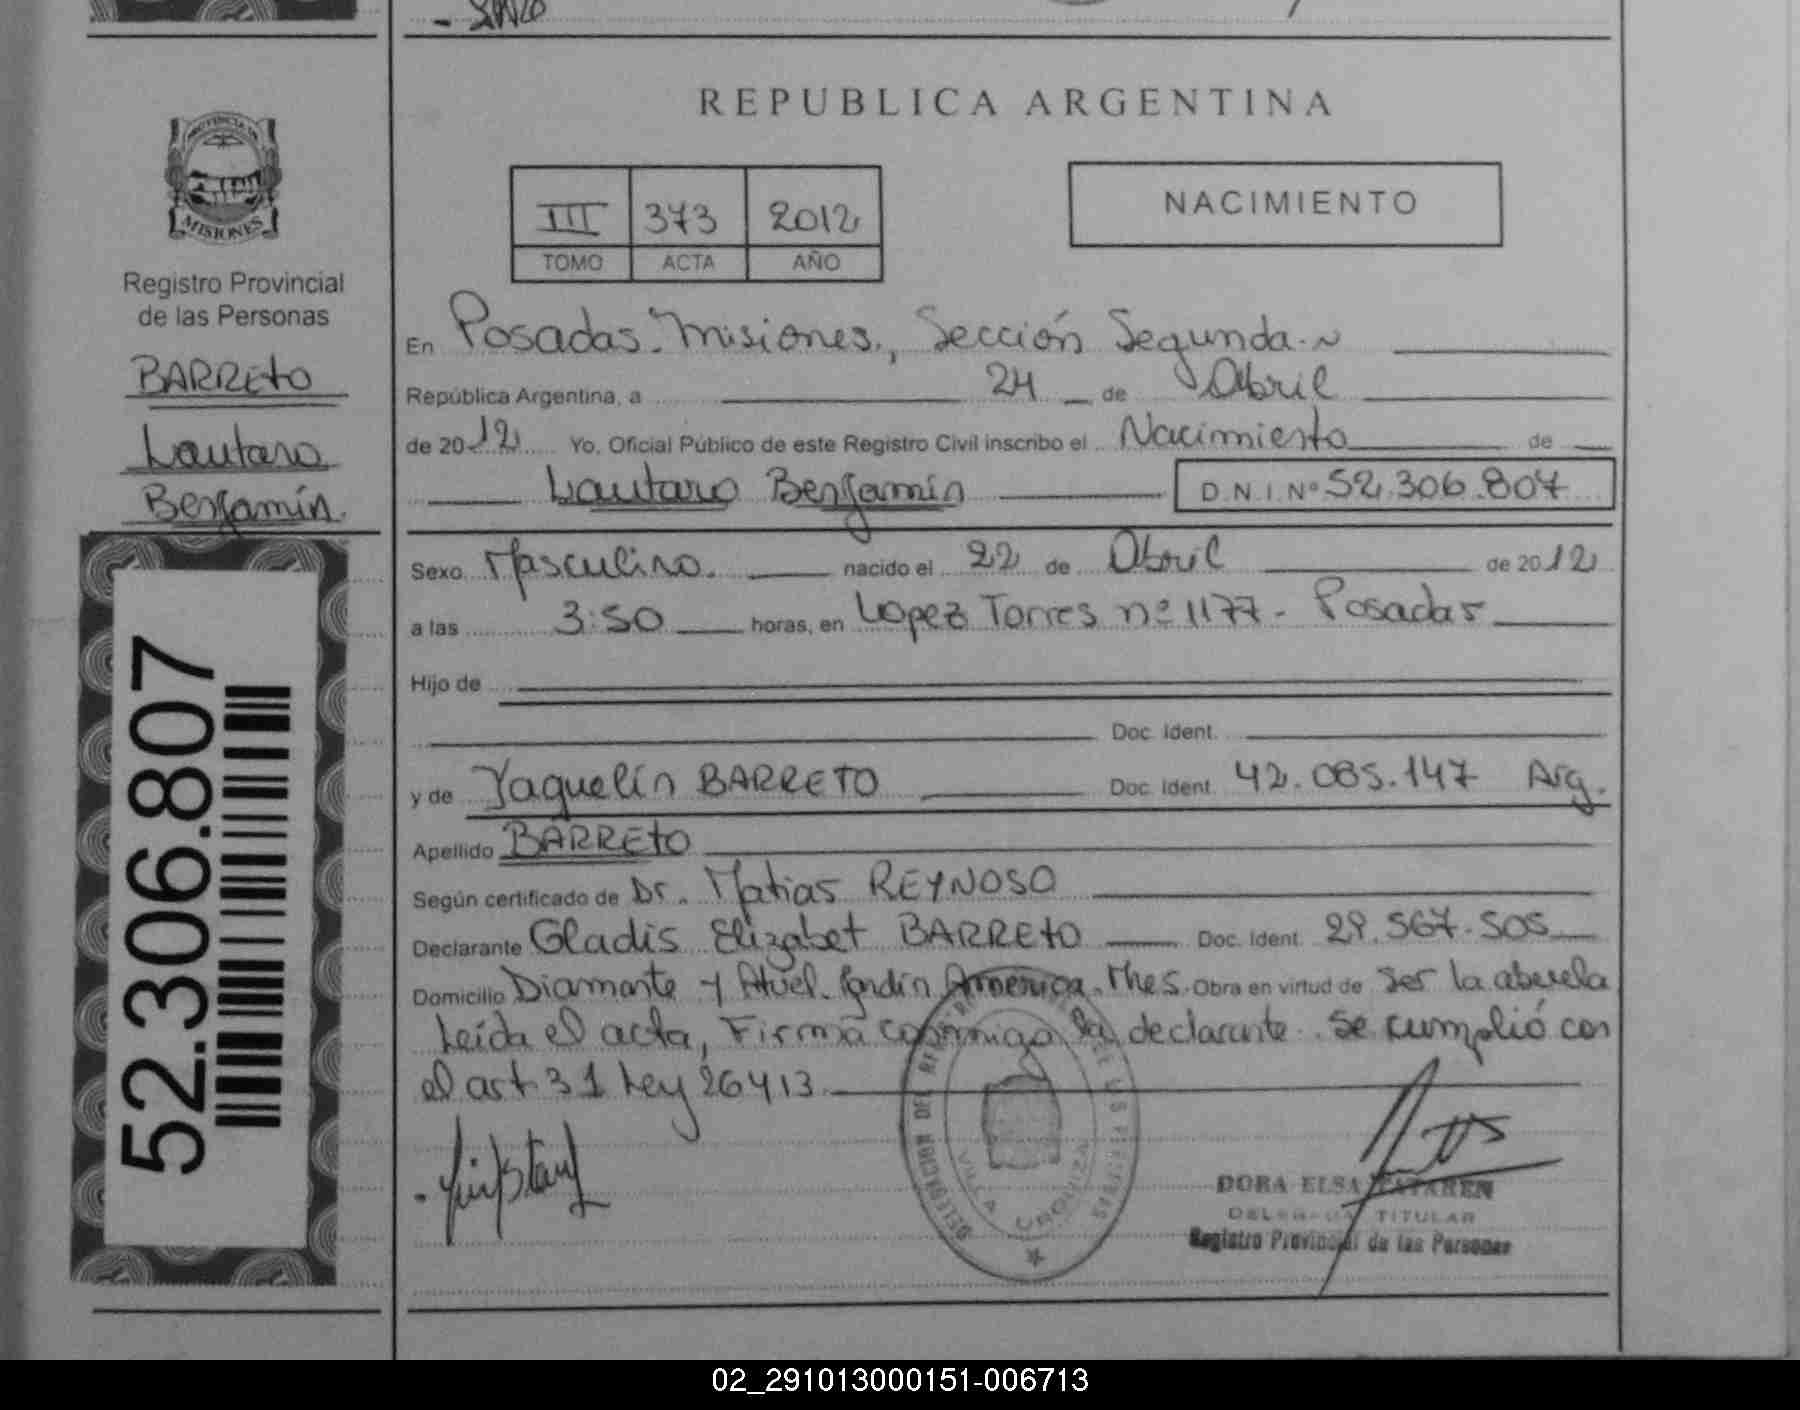 REPUBLICA ARGENTINA
PROVINCIA DE
MISIONES
Registro Provincial
de las Personas
BARRETO
Lautaro
Benjamín.
52.306.807
III 373 2012
TOMO ACTA AÑO
NACIMIENTO
En Posadas. Misiones, Sección Segunda.
República Argentina, a 24 de Abril
de 2012 Yo, Oficial Público de este Registro Civil inscribo el Nacimiento de
Lautaro Benjamín D.N.I. Nº 52.306.807
Sexo Masculino. nacido el 22 de Abril de 2012
a las 3:50 horas, en Lopez Torres nº 1177 - Posadas
Hijo de
Doc. Ident.
y de Yaquelín BARRETO Doc. Ident. 42.085.147 Arg.
Apellido BARRETO
Según certificado de Dr. Matias REYNOSO
Declarante Gladis Elizabet BARRETO Doc. Ident. 29.567.505
Domicilio Diamante y Atuel. Jardín América. Mnes. Obra en virtud de ser la abuela
Leída el acta, Firma conmigo la declarante. Se cumplió con
el art 31 Ley 26413.
DELEGACION DEL REGISTRO
VILLA URQUIZA
DORA ELSA
TITULAR
Registro Provincial de las Personas
02_291013000151-006713